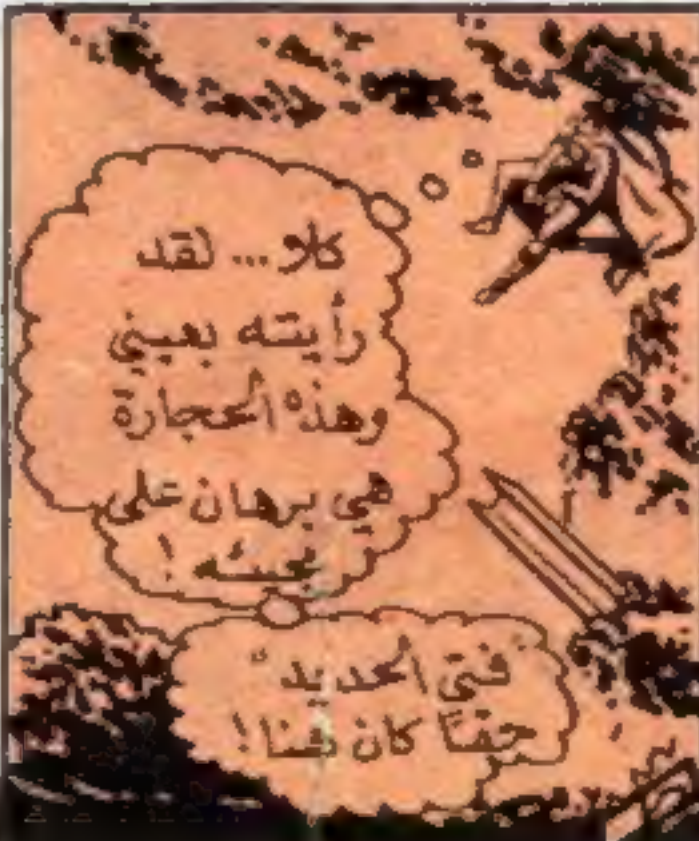 كلا... لقد
رأيته بعيني
وهذه الحجارة
هي برهان على
مجيئه!
"فتى الحديد"
حقًا كان هنا!